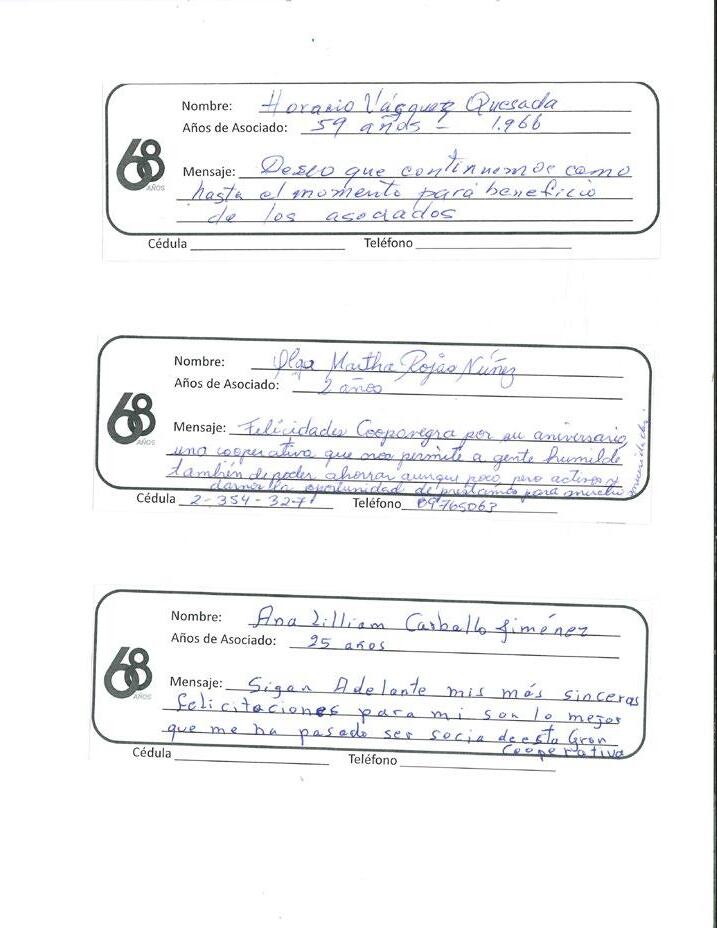 Nombre: Horacio Vásquez Quesada
Años de Asociado: 59 años - 1.966
68
AÑOS
Mensaje: Deseo que continuemos como
hasta el momento para beneficio
de los asociados
Cédula Teléfono
Nombre: Olga Martha Rojas Núñez
Años de Asociado: 2 años
68
AÑOS
Mensaje: Felicidades Coopavegra por su aniversario,
una cooperativa que nos permite a gente humilde
también de poder ahorrar aunque poco, pero activos y
darnos la oportunidad de préstamos para
Cédula 2-354-327 Teléfono 89765063
Nombre: Ana Lilliam Carballo Jiménez
Años de Asociado: 25 años
68
AÑOS
Mensaje: Sigan Adelante mis más sinceras
felicitaciones para mi son lo mejor
que me ha pasado ser socia de esta Gran
Cooperativa
Cédula Teléfono